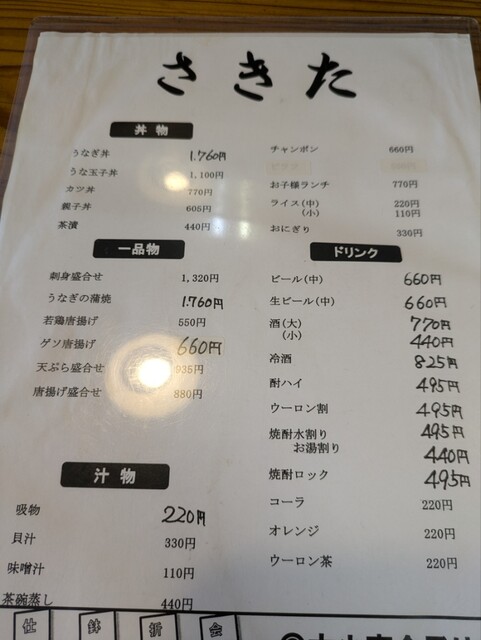 さきた
丼物
うなぎ丼 1.760円
うな玉子丼 1,100円
カツ丼 770円
親子丼 605円
茶漬 440円
一品物
刺身盛合せ 1,320円
うなぎの蒲焼 1.760円
若鶏唐揚げ 550円
ゲソ唐揚げ 660円
天ぷら盛合せ 935円
唐揚げ盛合せ 880円
汁物
吸物 220円
貝汁 330円
味噌汁 110円
茶碗蒸し 440円
チャンポン 660円
お子様ランチ 770円
ライス(中) 220円
(小) 110円
おにぎり 330円
ドリンク
ビール(中) 660円
生ビール(中) 660円
酒(大) 770円
(小) 440円
冷酒 825円
酎ハイ 495円
ウーロン割 495円
焼酎水割り 495円
お湯割り 440円
焼酎ロック 495円
コーラ 220円
オレンジ 220円
ウーロン茶 220円
仕 鉢 折 会